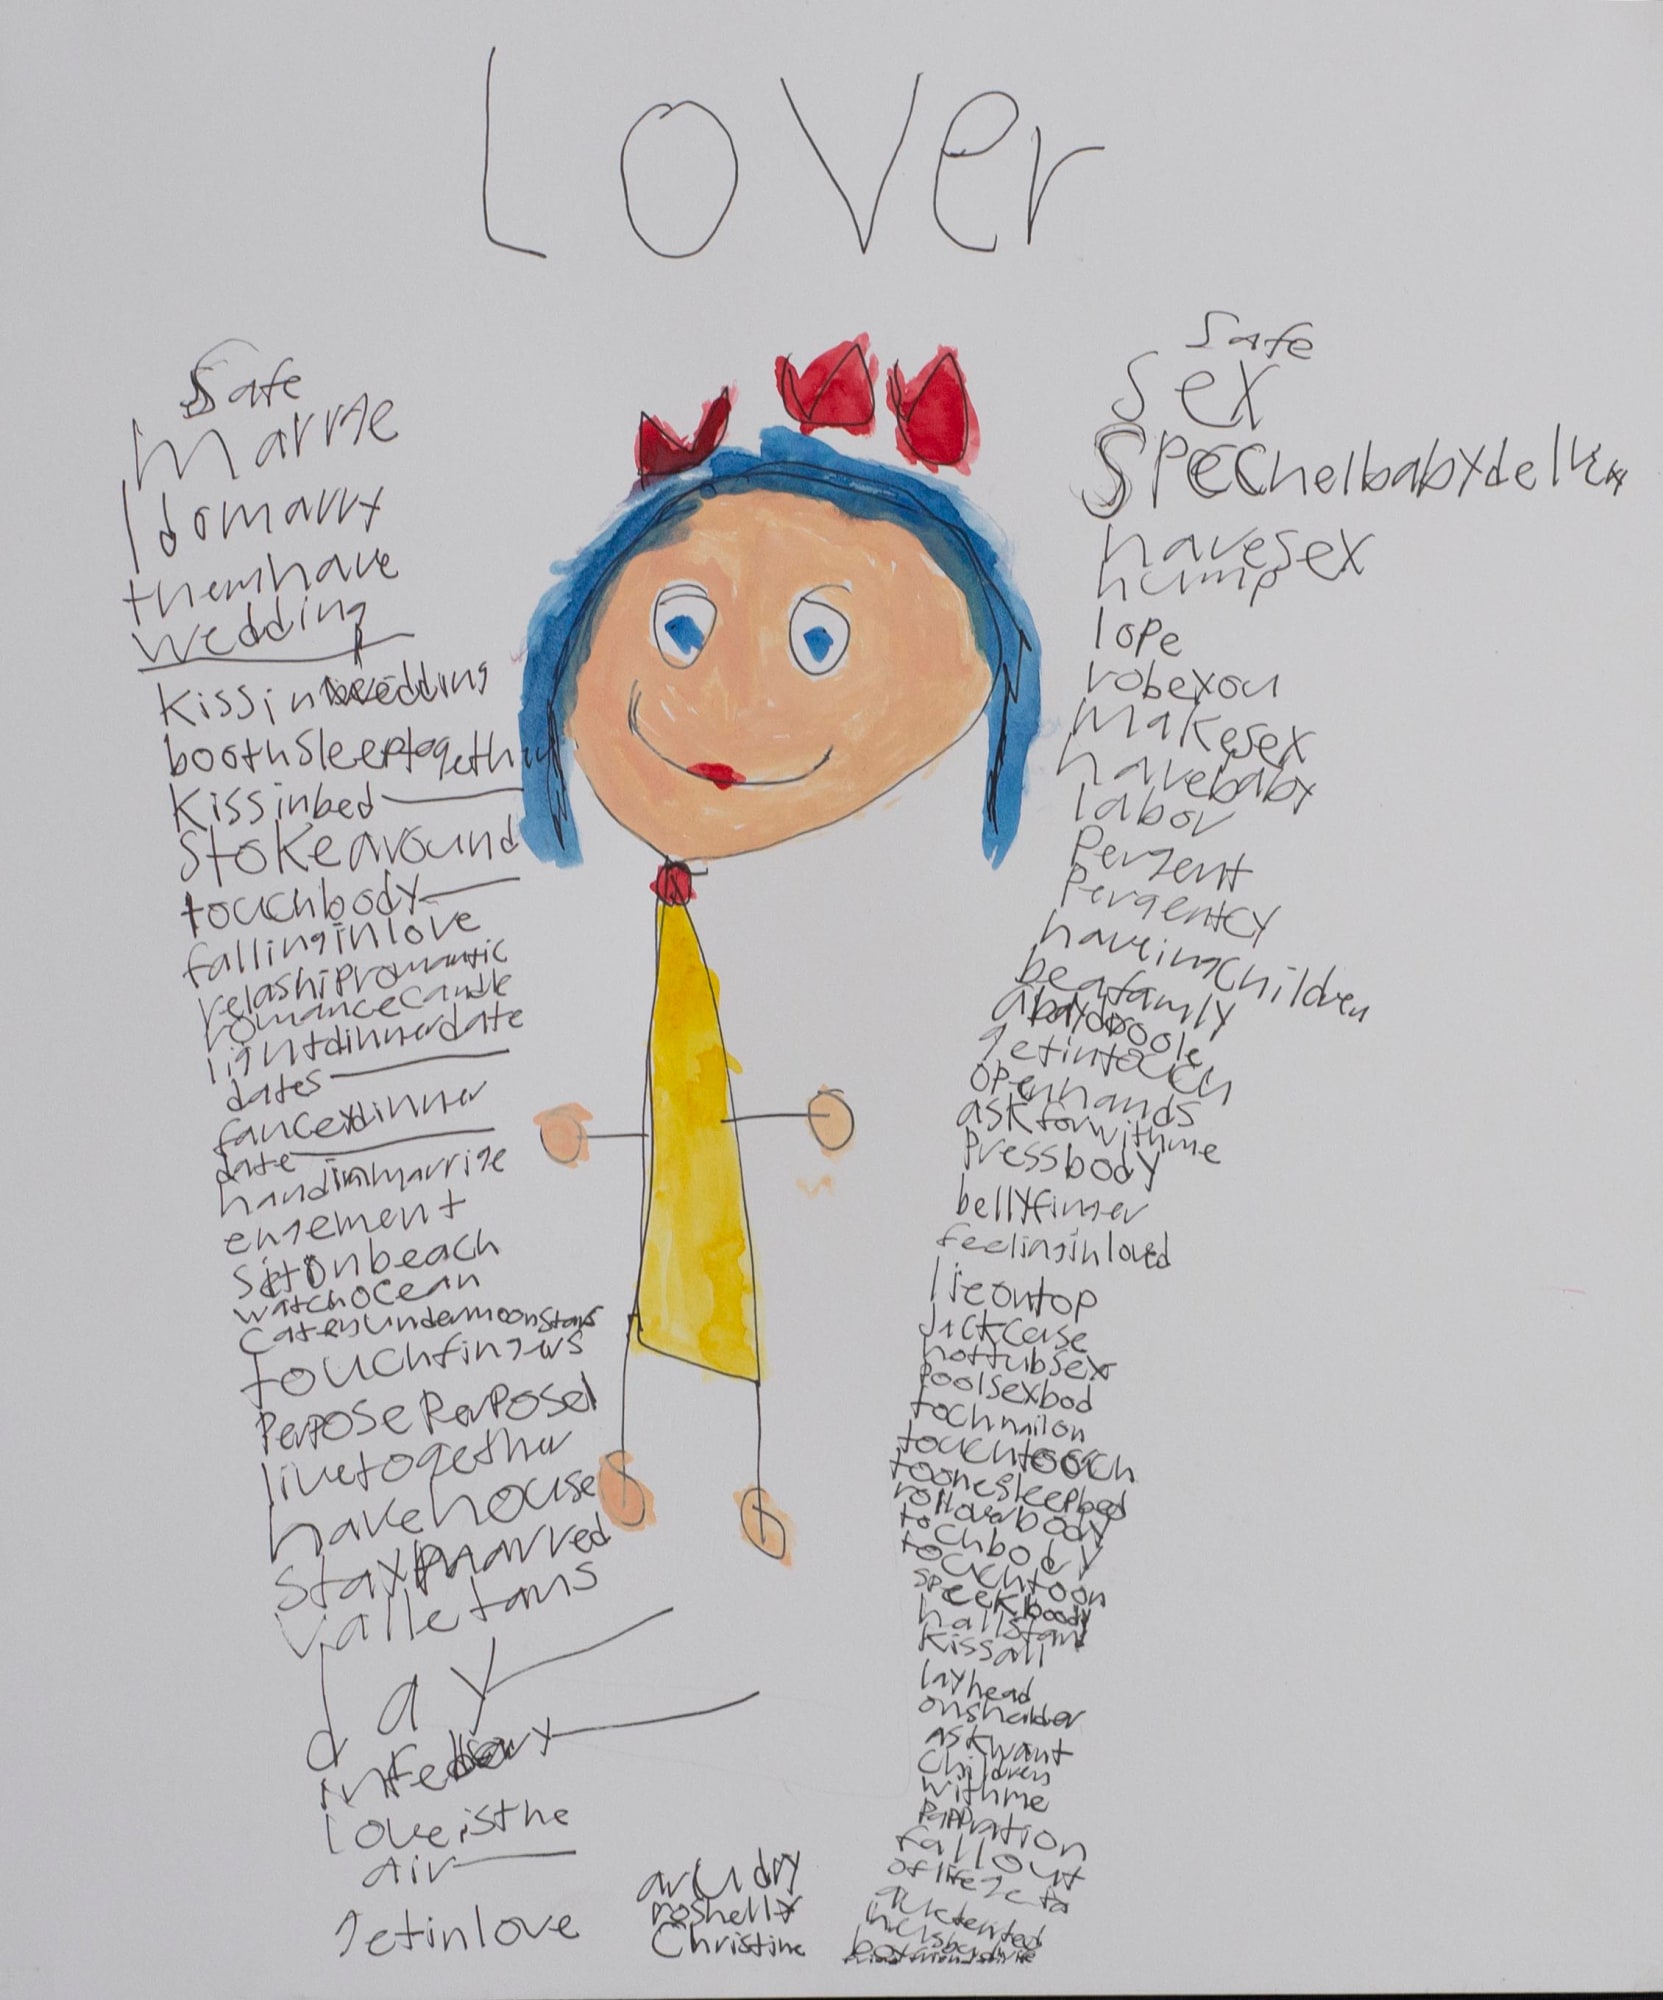 Lover
Safe
marrie
Idomarry
themhave
wedding
Kissinwedding
boothsleeptogether
Kissinbed
Stokearound
touchbody
fallinginlove
relashipromantic
romancecandle
lightdinnerdate
dates
fanceydinner
date
handinmarrige
engement
sitonbeach
watchocean
toucHfingers
PerposePerPosel
livetogether
havehouse
Staymarred
Valletans
day
infebuary
loveisthe
air
getinlove
Safe
Sex
havesex
hump
lope
robeyou
makesex
havebaby
labor
Pergent
Pergentcy
haveingchildren
beafamly
getintouch
openhands
askforwithme
Pressbody
bellyfinger
feelinginloved
lieontop
Jackcuse
hottubsex
Poolsexbod
tochnailon
toonesleepbed
rolloverbody
tochbody
touchtoon
speekbody
Kissall
layhead
onshulder
askwant
Children
withme
fallout
Christine